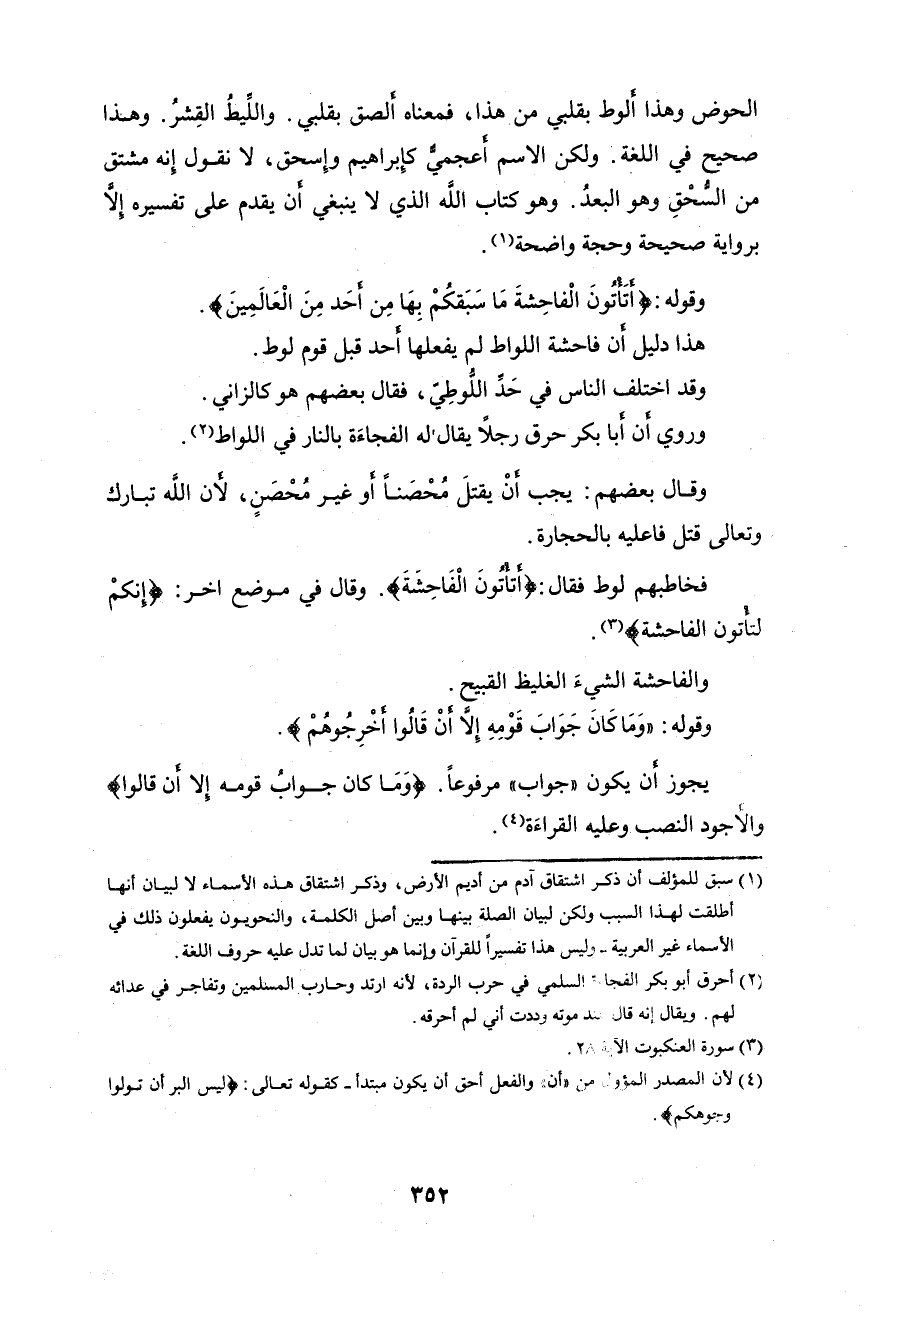 الحوض وهذا أَلوط بقلبي من هذا، فمعناه أَلصق بقلبي. واللِّيطُ القِشرُ. وهـذا
صحيح في اللغة. ولكن الاسم أَعجميٌّ كإبراهيم وإسحق، لا نقـول إنه مشتق
من السُّحْقِ وهو البعدُ. وهو كتاب اللَّه الذي لا ينبغي أَن يقدم على تفسيره إلَّا
برواية صحيحة وحجة واضحة(١).
وقوله: ﴿أَتَأْتُونَ الْفاحِشةَ مَا سَبَقكُمْ بِهَا مِن أَحَد مِنَ الْعَالَمِينَ﴾.
هذا دليل أَن فاحشة اللواط لم يفعلها أَحد قبل قوم لوط.
وقد اختلف الناس في حَدِّ اللُّوطِيّ، فقال بعضهم هو كالزاني.
وروي أَن أَبا بكر حرق رجلاً يقال له الفجاءَة بالنار في اللواط(٢).
وقـال بعضهم: يجب أَنْ يقتلَ مُحْصَنـاً أَو غيـر مُحْصَنٍ، لأن اللَّه تبـارك
وتعالى قتل فاعليه بالحجارة.
فخاطبهم لوط فقال: ﴿أَتأْتُونَ الْفَاحِشَةَ﴾. وقال في مـوضع اخـر: ﴿إنكمْ
لتأْتون الفاحشة﴾(٣).
والفاحشة الشيءَ الغليظ القبيح.
وقوله: «وَمَا كَانَ جَوَابَ قَوْمِهِ إلَّا أَنْ قَالُوا أَخْرِجُوهُمْ﴾.
يجوز أَن يكون «جواب» مرفوعاً. ﴿وَمَـا كان جـــوابُ قومـه إلا أَن قالوا﴾
والأَجود النصب وعليه القراءَة(٤).
(١) سبق للمؤلف أن ذكـر اشتقاق آدم من أديم الأرض، وذكـر اشتقاق هـذه الأسمـاء لا لبيـان أنهـا
أطلقت لهـذا السبب ولكن لبيان الصلة بينهـا وبين أصل الكلمـة، والنحويـون يفعلون ذلك في
الأسماء غير العربية ـ وليس هذا تفسيراً للقرآن وإنما هو بيان لما تدل عليه حروف اللغة.
(٢) أحرق أبو بكر السلمي في حرب الردة، لأنه ارتد وحـارب المسلمين وتفاجـر في عدائه
لهم. ويقال إنه قال موته وددت أني لم أحرقه.
(٣) سورة العنكبوت الآية ٢٨.
(٤) لأن المصدر المؤول من «أن» والفعل أحق أن يكون مبتدأ ـ كقوله تعـالى: ﴿ليس البر أن تـولوا
وجوهكم﴾.
٣٥٢